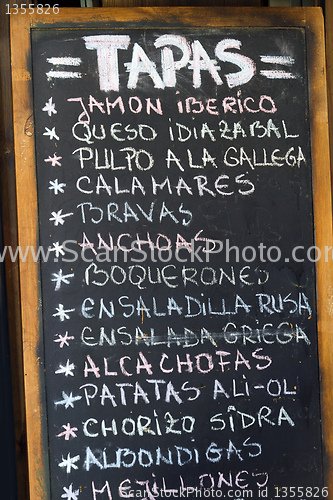 1355826
= TAPAS =
* JAMON IBERICO
* QUESO IDIAZABAL
* PULPO A LA GALLEGA
* CALAMARES
* BRAVAS
* ANCHOAS
© StockPhotosArt.com
* BOQUERONES
* ENSALADILLA RUSA
* ENSALADA GRIEGA
* ALCACHOFAS
* PATATAS ALI-OL
* CHORIZO SIDRA
* ALBONDIGAS
* MEJILLONES
1355826